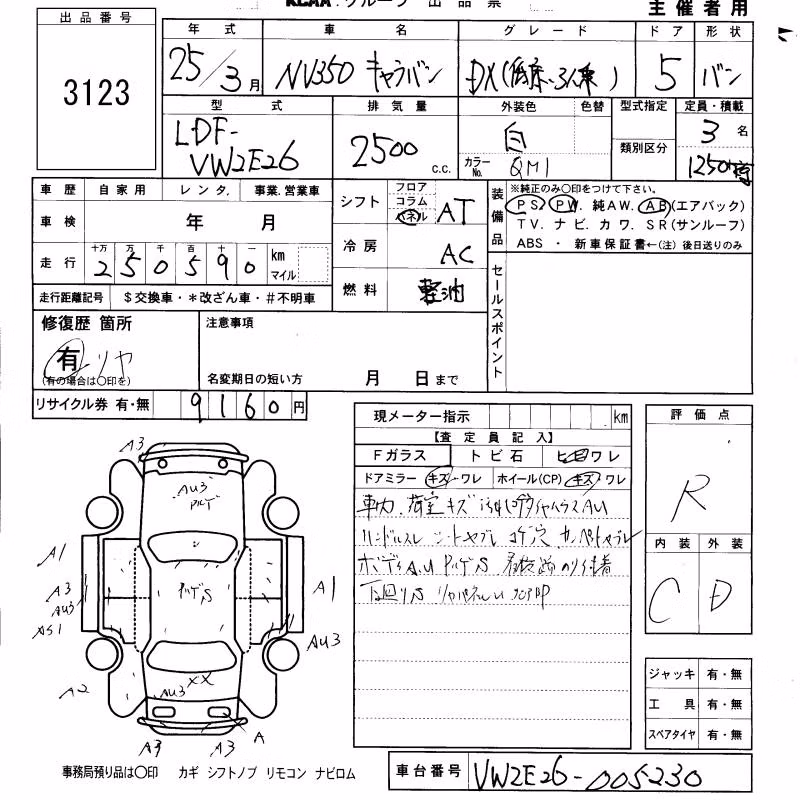 KCAA グループ 出品票
主催者用
出品番号
3123
年式 車名 グレード ドア 形状
25/3月 NV350 キャラバン DX(低床・3人乗) 5 バン
型式 排気量 外装色 色替 型式指定 定員・積載
LDF-VW2E26 2500 c.c. 白 類別区分 3名
カラーNo. QM1 1250
車歴 自家用 レンタ. 事業.営業車
車検 年 月
走行 十万 万 千 百 十 一 km マイル
250590
走行距離記号 $交換車・*改ざん車・#不明車
シフト フロア コラム パネル AT
冷房 AC
燃料 軽油
装備品 ※純正のみ○印をつけて下さい。
PS. PW. 純AW. AB(エアバック)
TV. ナビ. カワ. SR(サンルーフ)
ABS ・ 新車保証書←(注)後日送りのみ
セールスポイント
修復歴 箇所
有 リヤ
(有の場合は○印を)
注意事項
名変期日の短い方 月 日まで
リサイクル券 有・無 9160円
現メーター指示 km
【査定員記入】
Fガラス トビ石 ヒビワレ
ドアミラー キズ・ワレ ホイール(CP) キズ・ワレ
車内 荷室キズ
ハンドルスレ シートヤブレ コゲ穴
ボディAU
下回りS
評価点
R
内装 外装
C D
ジャッキ 有・無
工具 有・無
スペアタイヤ 有・無
A3
AU3
A1
A3
AU3
A1
AU3
A2
XX
AU3
A3 A3 A
事務局預り品は○印 カギ シフトノブ リモコン ナビロム
車台番号 VW2E26-005230